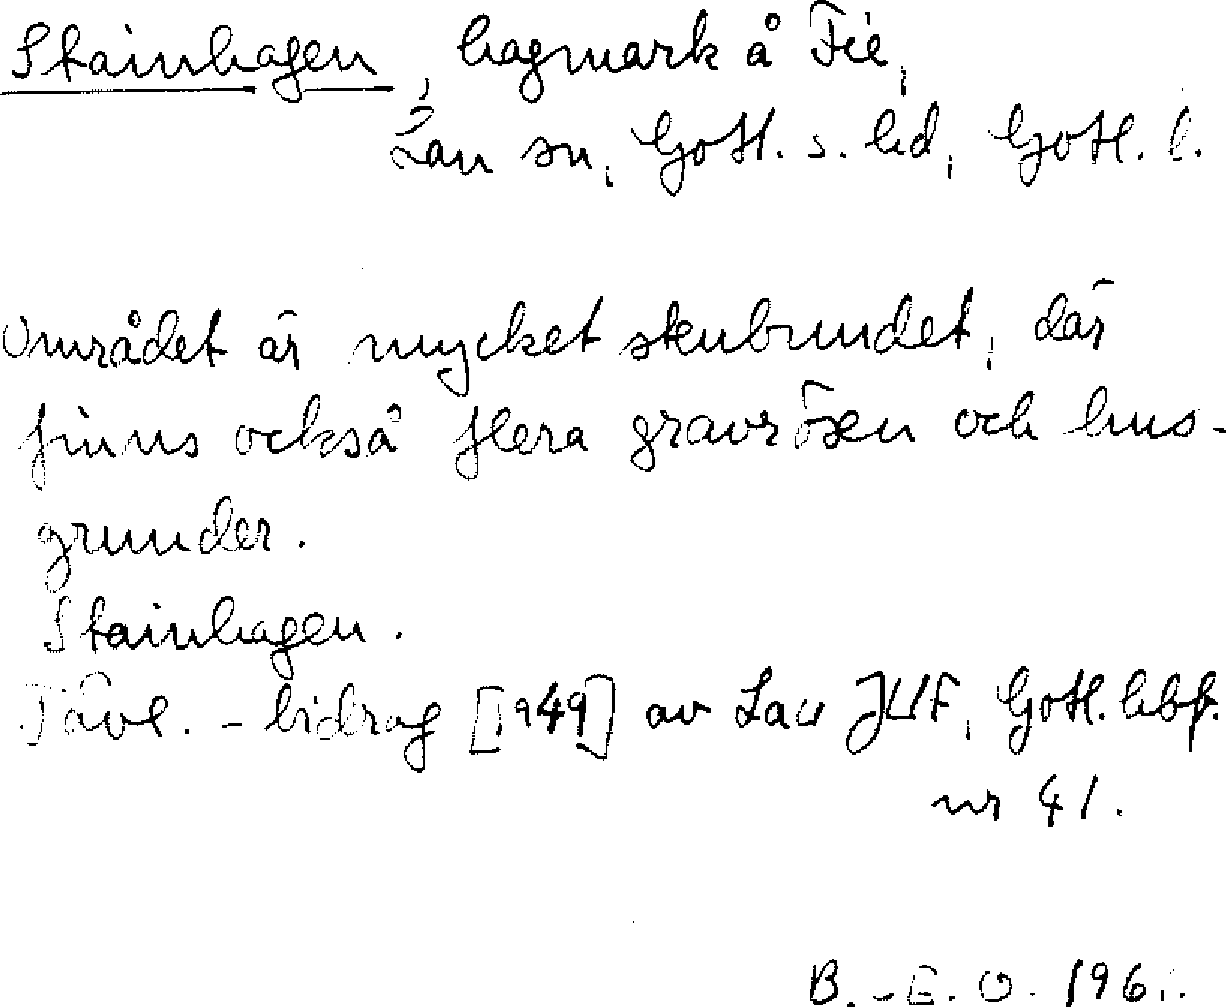 Stainhagen, hagmark å Fie,
Lau sn, Gotl. s. hd, Gotl. l.
Området är mycket stenbundet, där
finns också flera gravrösen och hus-
grunder.
Stainhagen.
Tävl. - bidrag [1949] av Lau JUF, Gotl. hbf.
nr 41.
B.-E. O. 1961.